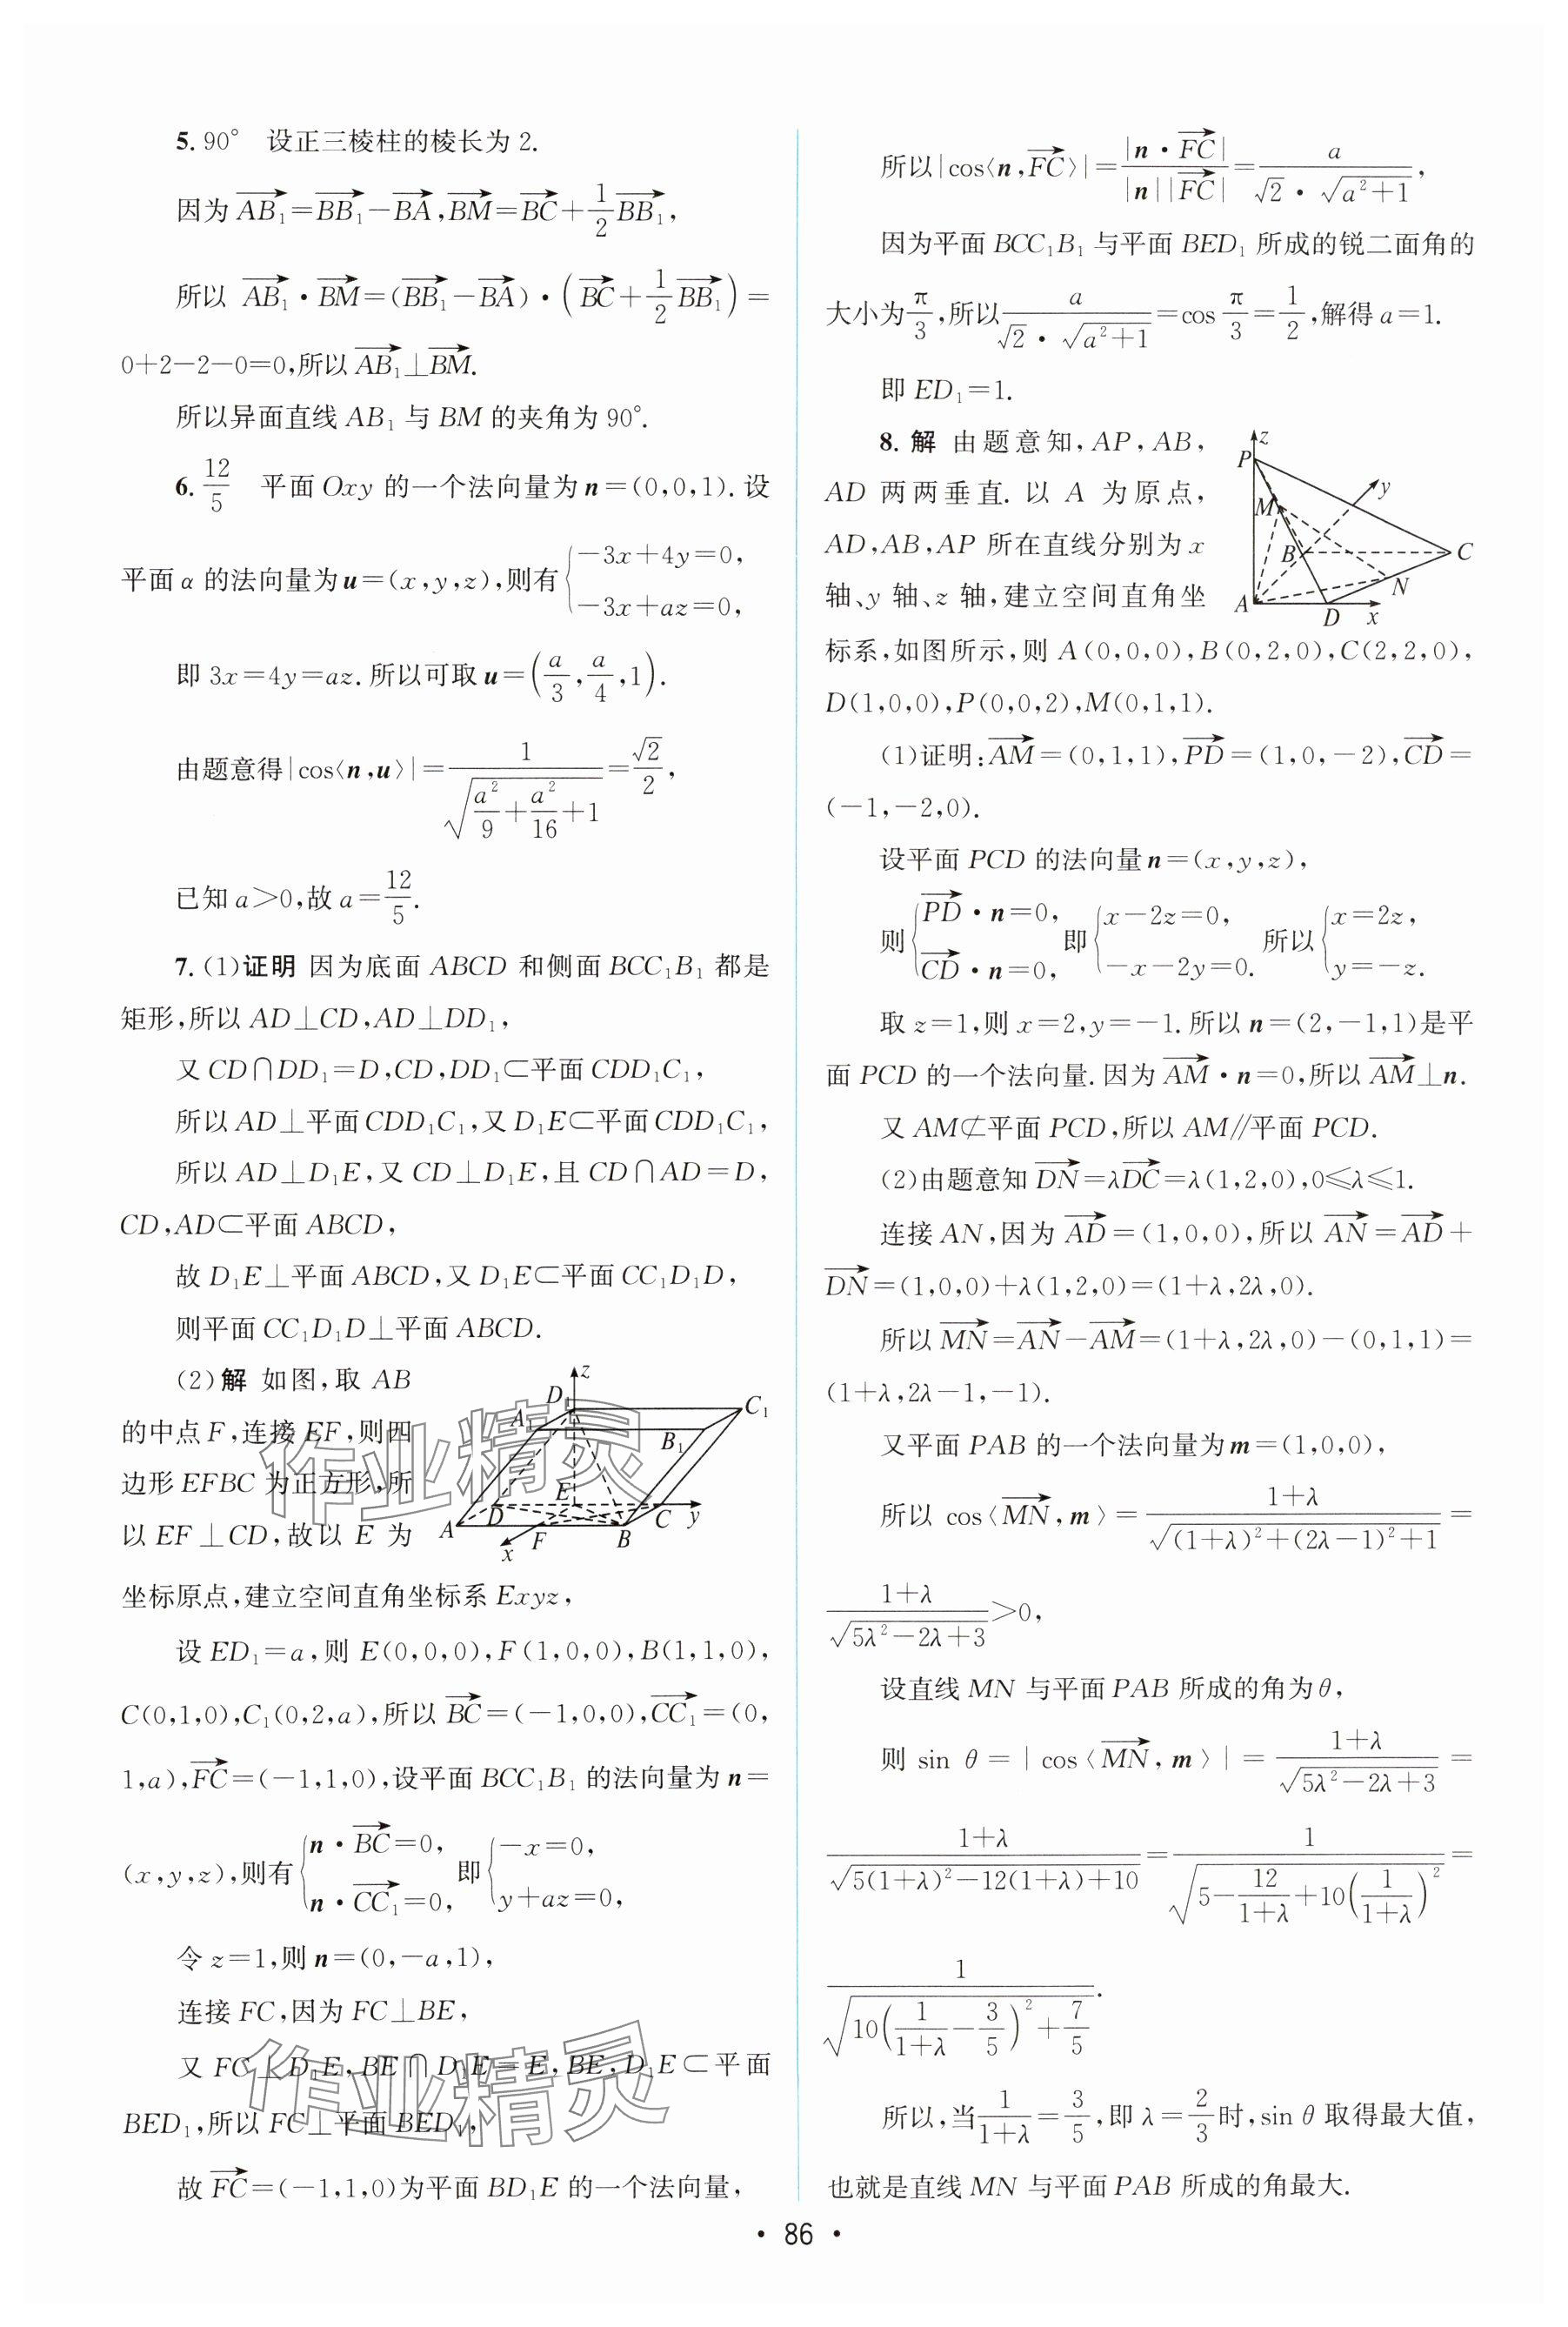 5. 90°　设正三棱柱的棱长为 2.
因为$\overrightarrow{AB_1}=\overrightarrow{BB_1}-\overrightarrow{BA},\overrightarrow{BM}=\overrightarrow{BC}+\frac{1}{2}\overrightarrow{BB_1}$,
所以 $\overrightarrow{AB_1}\cdot\overrightarrow{BM}=(\overrightarrow{BB_1}-\overrightarrow{BA})\cdot\left(\overrightarrow{BC}+\frac{1}{2}\overrightarrow{BB_1}\right)=$
0+2−2−0=0,所以$\overrightarrow{AB_1}\perp\overrightarrow{BM}$.
所以异面直线 $AB_1$ 与 BM 的夹角为 90°.
6. $\frac{12}{5}$　平面 Oxy 的一个法向量为 n=(0,0,1). 设
平面 α 的法向量为 u=(x,y,z),则有$\begin{cases}-3x+4y=0,\\-3x+az=0,\end{cases}$
即 3x=4y=az. 所以可取 $u=\left(\frac{a}{3},\frac{a}{4},1\right)$.
由题意得$|\cos\langle n,u\rangle|=\frac{1}{\sqrt{\frac{a^2}{9}+\frac{a^2}{16}+1}}=\frac{\sqrt{2}}{2}$,
已知 a>0,故 $a=\frac{12}{5}$.
7. (1)证明 因为底面 ABCD 和侧面 $BCC_1B_1$ 都是
矩形,所以 AD⊥CD,AD⊥$DD_1$,
又 CD∩$DD_1$=D,CD,$DD_1$⊂平面 $CDD_1C_1$,
所以 AD⊥平面 $CDD_1C_1$,又 $D_1E$⊂平面 $CDD_1C_1$,
所以 AD⊥$D_1E$,又 CD⊥$D_1E$,且 CD∩AD=D,
CD,AD⊂平面 ABCD,
故 $D_1E$⊥平面 ABCD,又 $D_1E$⊂平面 $CC_1D_1D$,
则平面 $CC_1D_1D$⊥平面 ABCD.
(2)解 如图,取 AB
的中点 F,连接 EF,则四
边形 EFBC 为正方形,所
以 EF⊥CD,故以 E 为
z
$D_1$
$C_1$
$A_1$
$B_1$
E
A
D
F
B
C
y
x
坐标原点,建立空间直角坐标系 Exyz,
设 $ED_1$=a,则 E(0,0,0),F(1,0,0),B(1,1,0),
C(0,1,0),$C_1$(0,2,a),所以 $\overrightarrow{BC}$=(−1,0,0),$\overrightarrow{CC_1}$=(0,
1,a),$\overrightarrow{FC}$=(−1,1,0),设平面 $BCC_1B_1$ 的法向量为 n=
(x,y,z),则有$\begin{cases}n\cdot\overrightarrow{BC}=0,\\n\cdot\overrightarrow{CC_1}=0,\end{cases}$即$\begin{cases}-x=0,\\y+az=0,\end{cases}$
令 z=1,则 n=(0,−a,1),
连接 FC,因为 FC⊥BE,
又 FC⊥$D_1E$,BE∩$D_1E$=E,BE,$D_1E$⊂平面
$BED_1$,所以 FC⊥平面 $BED_1$,
故 $\overrightarrow{FC}$=(−1,1,0)为平面 $BD_1E$ 的一个法向量,
所以$|\cos\langle n,\overrightarrow{FC}\rangle|=\frac{|n\cdot\overrightarrow{FC}|}{|n||\overrightarrow{FC}|}=\frac{a}{\sqrt{2}\cdot\sqrt{a^2+1}}$,
因为平面 $BCC_1B_1$ 与平面 $BED_1$ 所成的锐二面角的
大小为$\frac{π}{3}$,所以$\frac{a}{\sqrt{2}\cdot\sqrt{a^2+1}}=\cos\frac{π}{3}=\frac{1}{2}$,解得 a=1.
即 $ED_1$=1.
8. 解 由题意知,AP,AB,
AD 两两垂直. 以 A 为原点,
AD,AB,AP 所在直线分别为 x
轴、y 轴、z 轴,建立空间直角坐
z
P
y
M
B
C
N
A
D
x
标系,如图所示,则 A(0,0,0),B(0,2,0),C(2,2,0),
D(1,0,0),P(0,0,2),M(0,1,1).
(1)证明:$\overrightarrow{AM}$=(0,1,1),$\overrightarrow{PD}$=(1,0,−2),$\overrightarrow{CD}$=
(−1,−2,0).
设平面 PCD 的法向量 n=(x,y,z),
则$\begin{cases}\overrightarrow{PD}\cdot n=0,\\\overrightarrow{CD}\cdot n=0,\end{cases}$即$\begin{cases}x-2z=0,\\-x-2y=0.\end{cases}$所以$\begin{cases}x=2z,\\y=-z.\end{cases}$
取 z=1,则 x=2,y=−1. 所以 n=(2,−1,1)是平
面 PCD 的一个法向量. 因为 $\overrightarrow{AM}$·n=0,所以 $\overrightarrow{AM}$⊥n.
又 AM⊄平面 PCD,所以 AM∥平面 PCD.
(2)由题意知 $\overrightarrow{DN}=λ\overrightarrow{DC}$=λ(1,2,0),0≤λ≤1.
连接 AN,因为 $\overrightarrow{AD}$=(1,0,0),所以 $\overrightarrow{AN}=\overrightarrow{AD}+$
$\overrightarrow{DN}$=(1,0,0)+λ(1,2,0)=(1+λ,2λ,0).
所以 $\overrightarrow{MN}=\overrightarrow{AN}-\overrightarrow{AM}$=(1+λ,2λ,0)−(0,1,1)=
(1+λ,2λ−1,−1).
又平面 PAB 的一个法向量为 m=(1,0,0),
所以 $\cos\langle\overrightarrow{MN},m\rangle=\frac{1+λ}{\sqrt{(1+λ)^2+(2λ-1)^2+1}}=$
$\frac{1+λ}{\sqrt{5λ^2-2λ+3}}>0$,
设直线 MN 与平面 PAB 所成的角为 θ,
则 $\sin θ=|\cos\langle\overrightarrow{MN},m\rangle|=\frac{1+λ}{\sqrt{5λ^2-2λ+3}}=$
$\frac{1+λ}{\sqrt{5(1+λ)^2-12(1+λ)+10}}=\frac{1}{\sqrt{5-\frac{12}{1+λ}+10\left(\frac{1}{1+λ}\right)^2}}=$
$\frac{1}{\sqrt{10\left(\frac{1}{1+λ}-\frac{3}{5}\right)^2+\frac{7}{5}}}$.
所以,当$\frac{1}{1+λ}=\frac{3}{5}$,即 $λ=\frac{2}{3}$时,sin θ 取得最大值,
也就是直线 MN 与平面 PAB 所成的角最大.
作业精灵
作业精灵
• 86 •